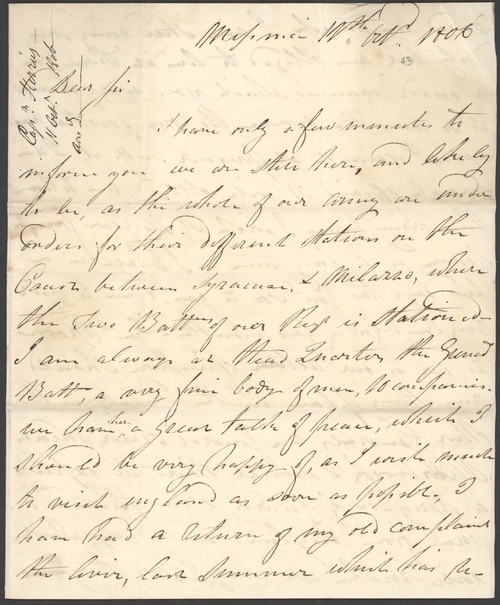 Messina 10th Octr 1806
43
Capn Harris
10 Octr 1806
Dear Sir
I have only a few minutes to
inform you we are still here, and likely
to be, as the whole of our army are under
orders for their different Stations on the
Coast between Syracuse, & Milazzo, where
the Two Batts of our Regt is Stationed
I am always at Head Quarters, the Grenadr
Batt, a very fine body of men, 10 companies.
we have here a great talk of peace, which I
should be very happy of, as I wish much
to visit england as soon as possible, I
have had a return of my old complaint
the liver, last Summer which has re-